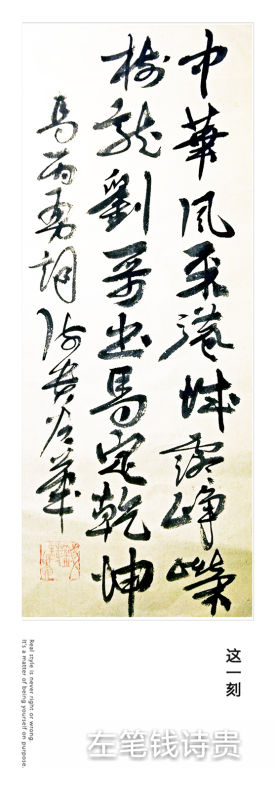 中華風采港城露崢嶸
樹龍劉哥出馬定乾坤
馬丙勇詞詩貴左筆
这一刻
Real style is never right or wrong
It's a matter of being yourself on purpose.
左笔钱诗贵